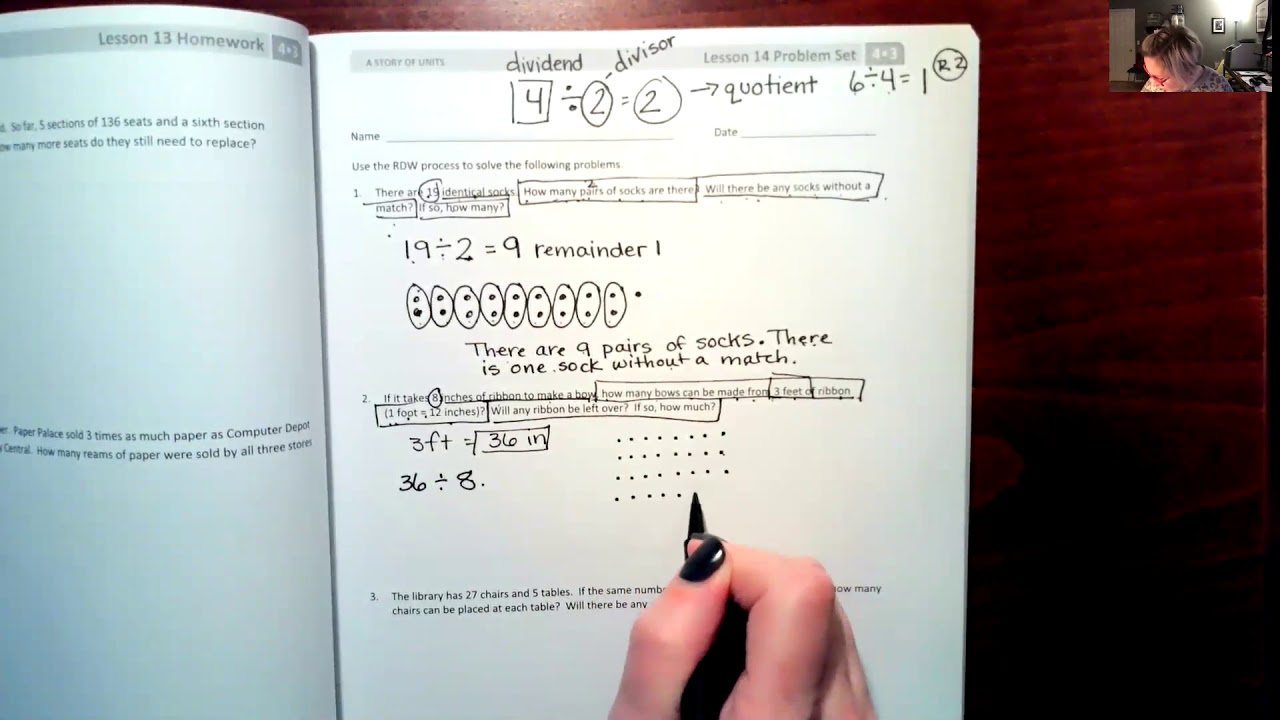 Lesson 13 Homework 4•3
So far, 5 sections of 136 seats and a sixth section
how many more seats do they still need to replace?
Paper Palace sold 3 times as much paper as Computer Depot
Central. How many reams of paper were sold by all three stores
A STORY OF UNITS
Lesson 14 Problem Set 4•3
dividend divisor
4 ÷ 2 = 2 → quotient 6÷4= 1 R2
Name Date
Use the RDW process to solve the following problems.
1. There are 19 identical socks. How many pairs of socks are there? Will there be any socks without a
2
match? If so, how many?
19÷2 = 9 remainder 1
There are 9 pairs of socks. There
is one sock without a match.
2. If it takes 8 inches of ribbon to make a bow, how many bows can be made from 3 feet of ribbon
(1 foot = 12 inches)? Will any ribbon be left over? If so, how much?
3ft = 36 in
36 ÷ 8
3. The library has 27 chairs and 5 tables. If the same how many
chairs can be placed at each table? Will there be any